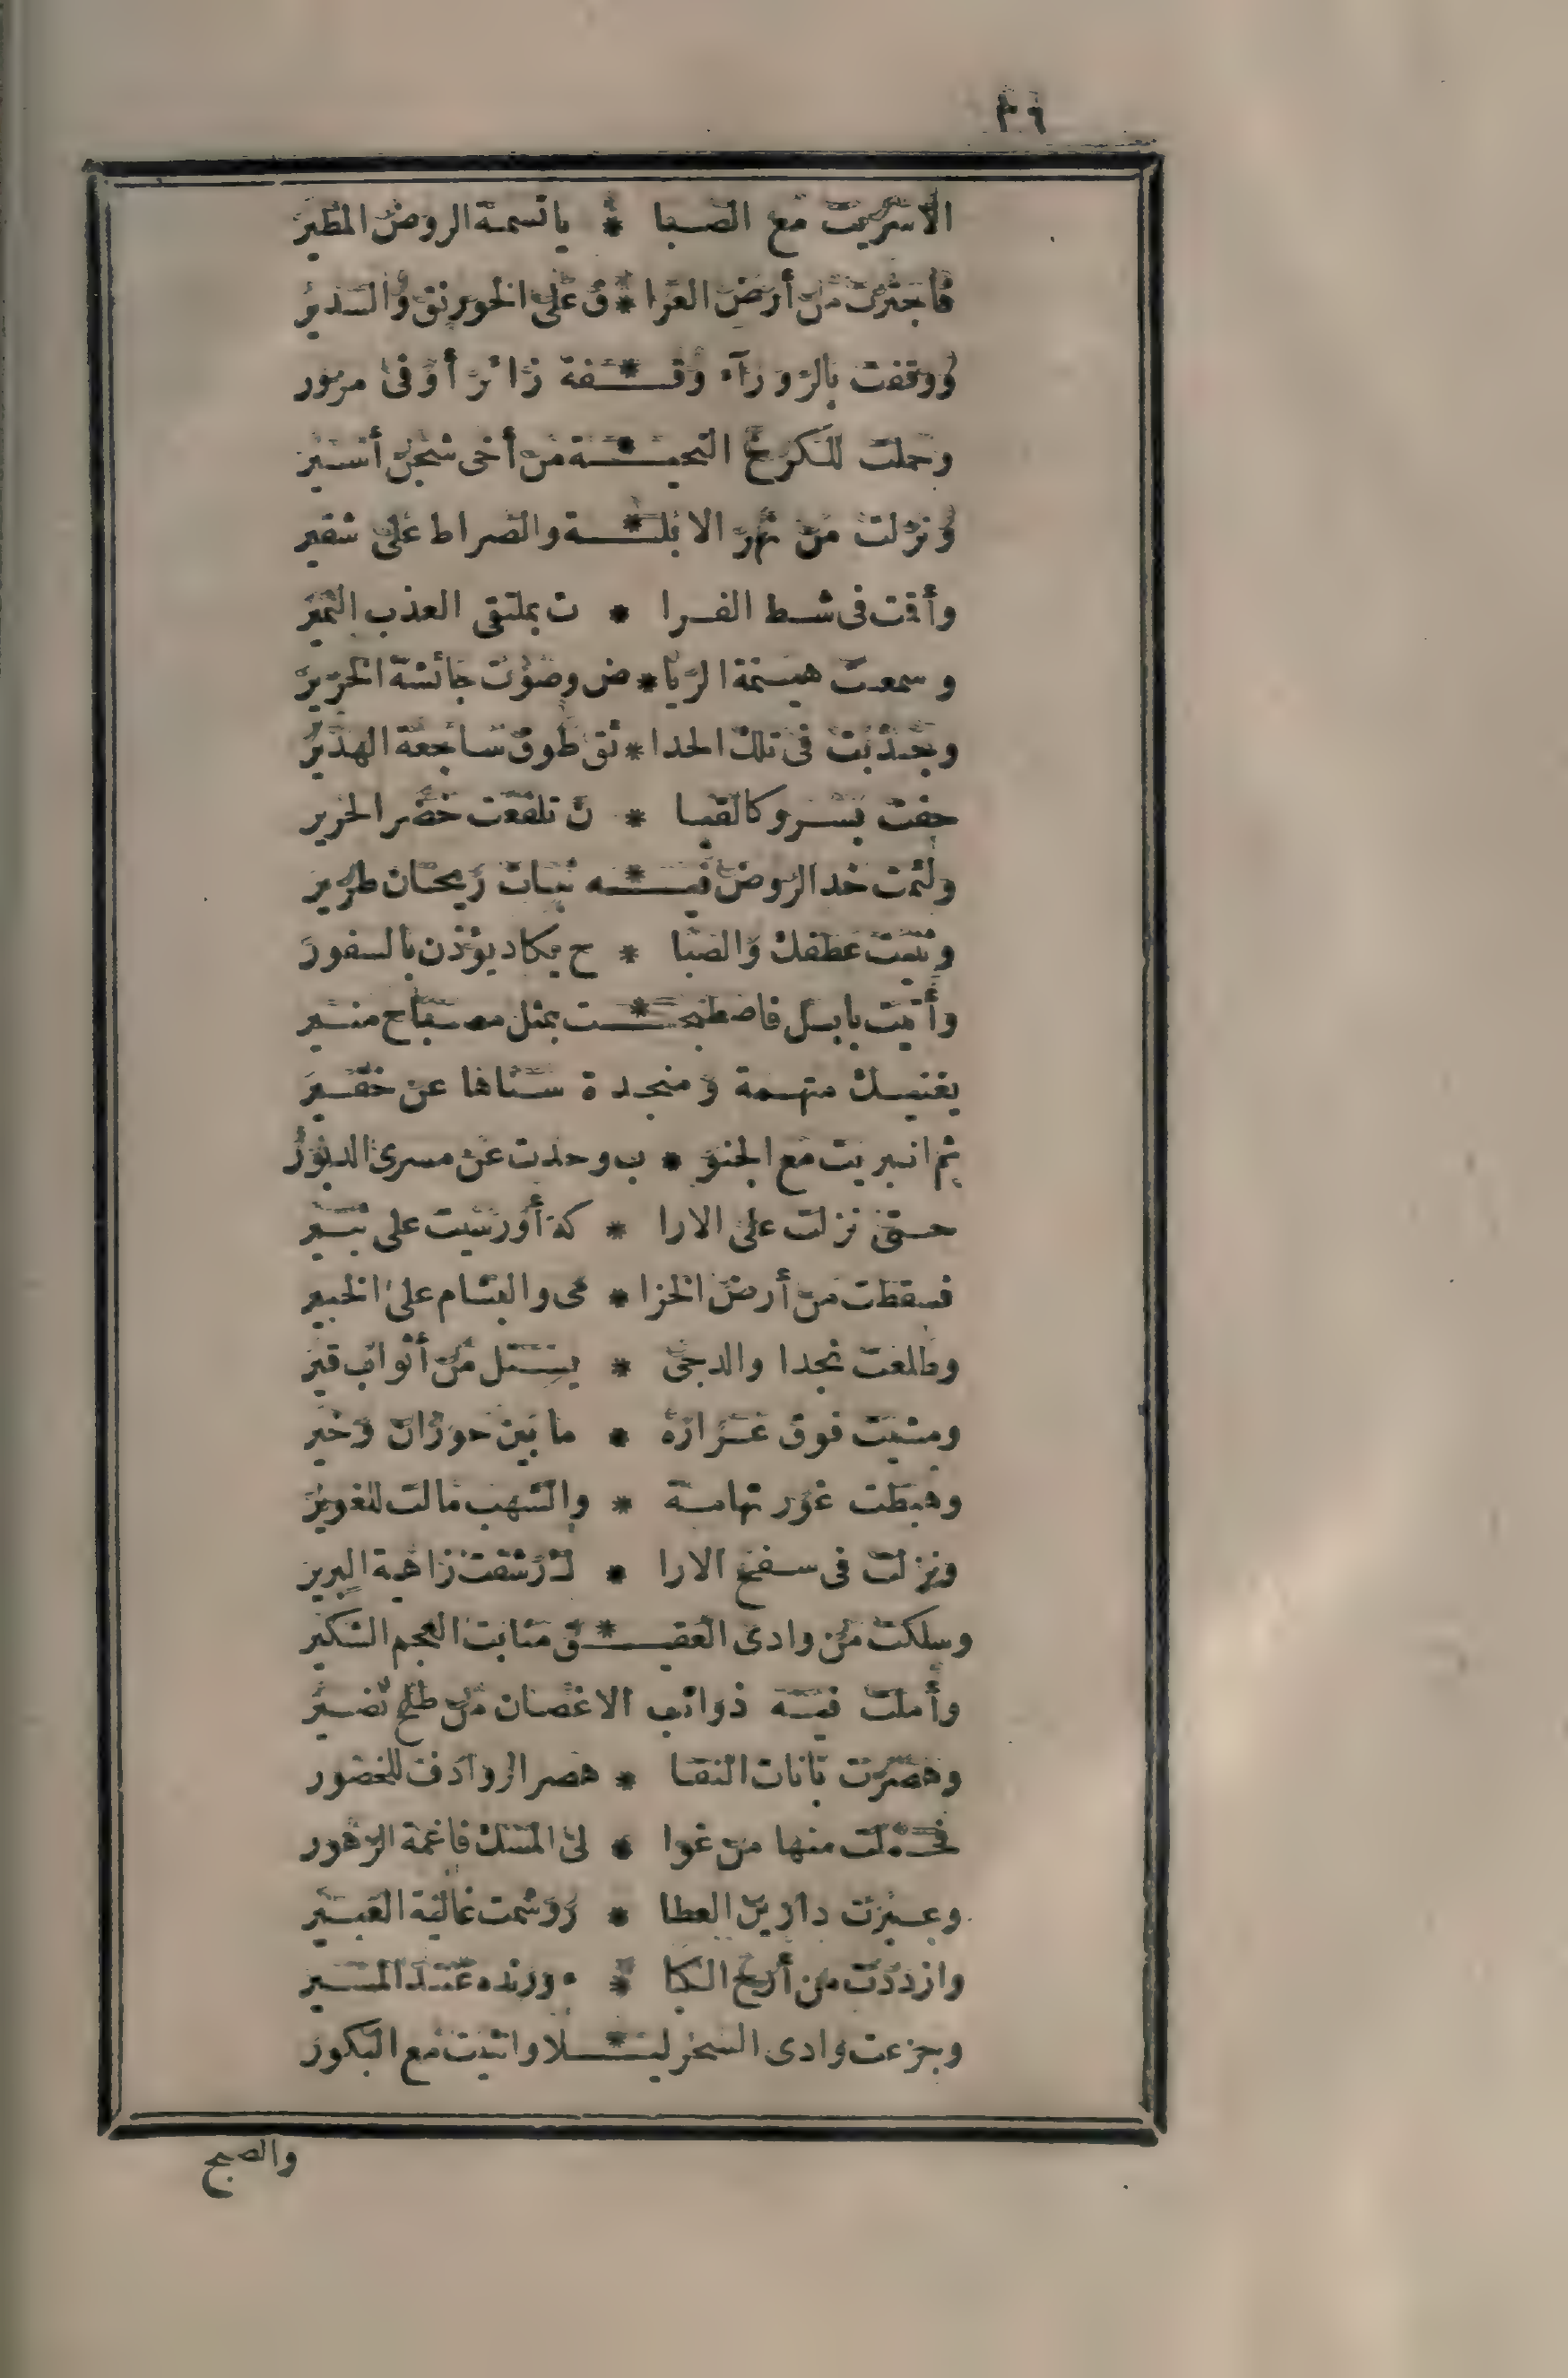 ٢٦
الاسريت مع الصبا * يا نسمة الروض المطير
فاجتزت من أرض العرا * ق على الخورنق والسدير
ووقفت بالزورآء وقـ * ـفة زائر أو فى مزور
وحملت للكرخ التحيـ * ـة من أخى شجن أسير
ونزلت من نهر الابلـ * ـة والصراط على شفير
وأقت فى شط الفرا * ت بملتقى العذب النمير
وسمعت هيمنة الريا * ض وصوت جائشة الخرير
وجذبت فى تلك الحدا * ئق طوق ساجعة الهدير
حفت بسرو كالقيا * ن تلفعت خضر الحرير
ولثمت خد الروض فيـ * ـه نبات ريحان طرير
وثنيت عطفك والصبا * ح يكاد يؤذن بالسفور
وأتيت بابل فاصطبحـ * ـت بمثل مصباح منير
يغنيك متهمة ومنجدة سناها عن خفير
ثم انبريت مع الجنو * ب وحدت عن مسرى الدبور
حتى نزلت على الارا * كة أو رسيت على ثبير
فسقطت من أرض الخزا * مى والبشام على الخبير
وطلعت نجدا والدجى * ينسل من أثواب قير
ومشيت فوق عراره * ما بين حوزان وخير
وهبطت غور تهامة * والشهب مالت للغوير
ونزلت فى سفح الارا * ك رشفت زاهية البرير
وسلكت من وادى العقيـ * ـق منابت العجم الشكير
وأملت فيه ذوائب الاغصان من طلح نضير
وهصرت بانات النقا * هصر الروادف للخصور
فحملت منها من غوا * لى المسك فاغمة الزهور
وعبرت دارين العطا * ر وشمت غالية العبير
وازددت من أرج الكبا * ء ورنده عند المسير
وجزعت وادى السحر ليـ * ـلا واثنيت مع البكور
والصبح